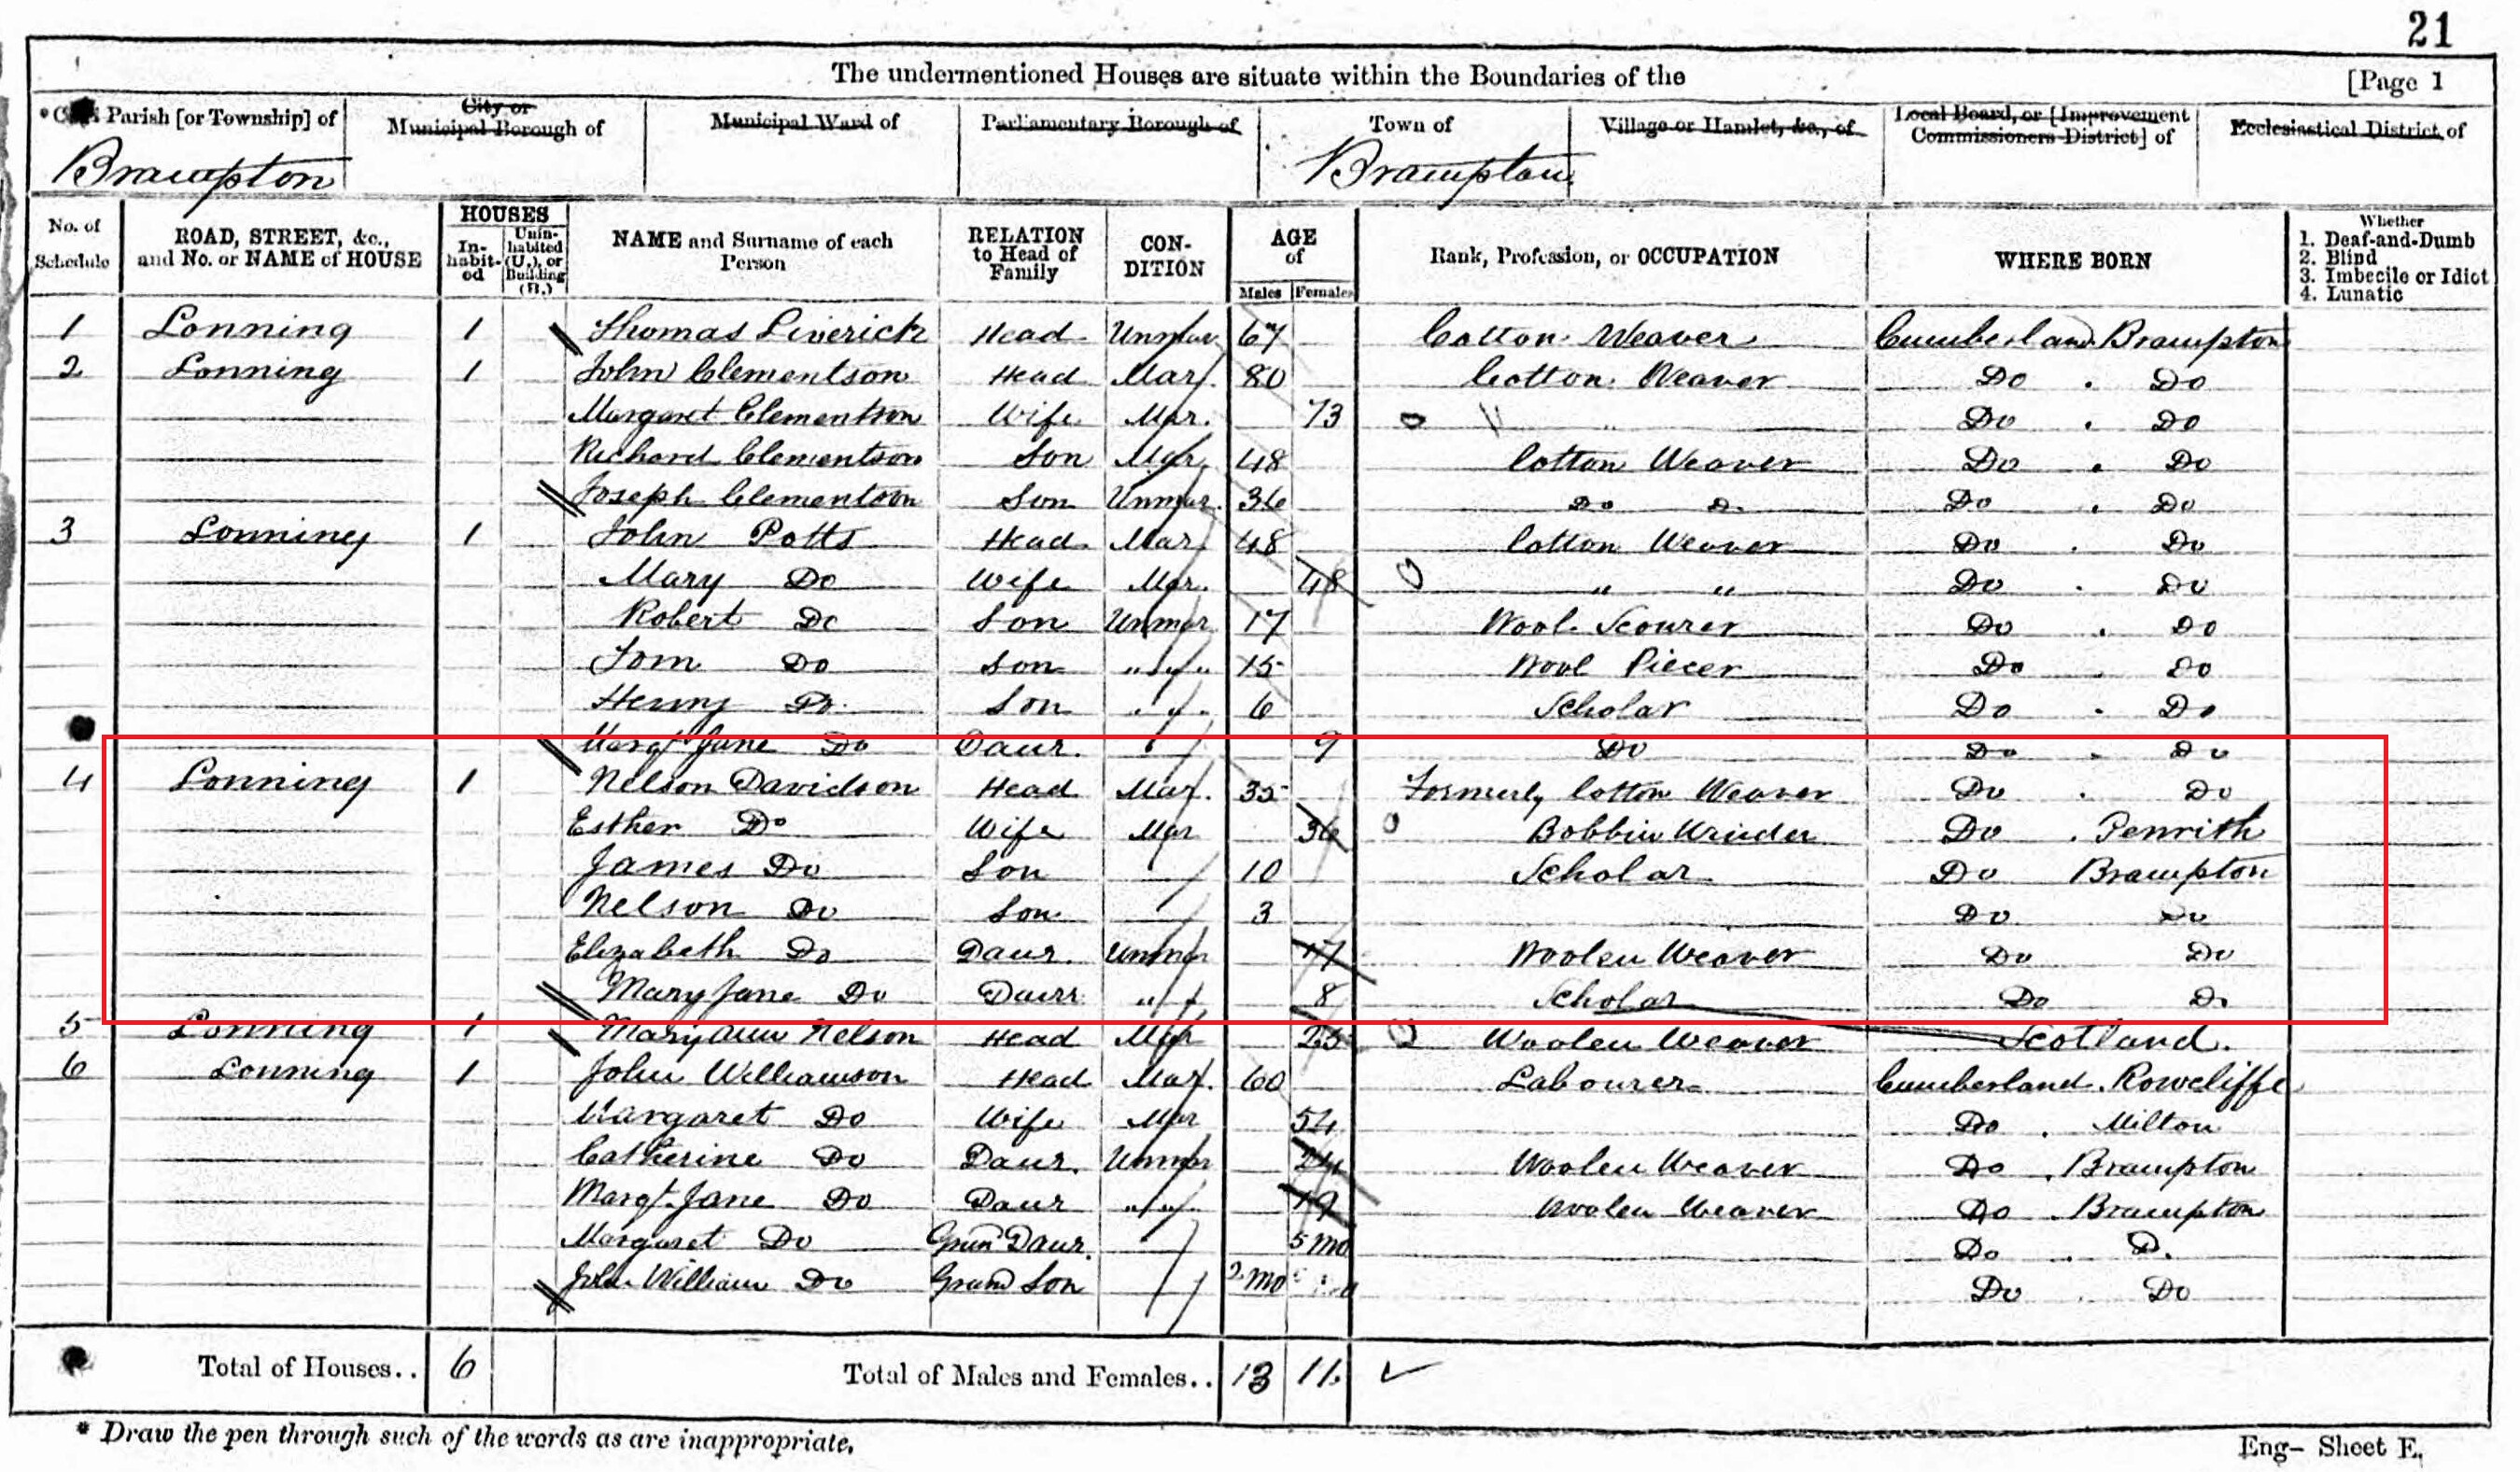 21
The undermentioned Houses are situate within the Boundaries of the [Page 1
Parish [or Township] of City or Municipal Borough of Municipal Ward of Parliamentary Borough of Town of Village or Hamlet, &c., of Local Board, or [Improvement Commissioners District] of Ecclesiastical District of
Brampton Brampton
No. of Schedule ROAD, STREET, &c., and No. or NAME of HOUSE HOUSES In-habit-ed Unin-habited (U.), or Building (B.) NAME and Surname of each Person RELATION to Head of Family CON-DITION AGE of Males Females Rank, Profession, or OCCUPATION WHERE BORN Whether 1. Deaf-and-Dumb 2. Blind 3. Imbecile or Idiot 4. Lunatic
1 Lonning 1 Thomas Liverick Head Unmar 67 Cotton Weaver Cumberland Brampton
2 Lonning 1 John Clementson Head Mar. 80 Cotton Weaver Do . Do
Margaret Clementson Wife Mar. 73 Do . Do
Richard Clementson Son Mar 48 Cotton Weaver Do . Do
Joseph Clementson Son Unmar. 36 Do Do Do . Do
3 Lonning 1 John Potts Head Mar 48 Cotton Weaver Do . Do
Mary Do Wife Mar. 48 " " Do . Do
Robert Do Son Unmar 17 Wool Scourer Do . Do
Tom Do Son " " 15 Wool Piecer Do . Do
Henry Do. Son " " 6 Scholar Do . Do
Margt Jane Do Daur. " 9 Do Do . Do
4 Lonning 1 Nelson Davidson Head Mar. 35 Formerly Cotton Weaver Do . Do
Esther Do Wife Mar 36 Bobbin Winder Do . Penrith
James Do Son 10 Scholar Do Brampton
Nelson Do Son 3 Do Do
Elizabeth Do Daur. Unmar 17 Woolen Weaver Do Do
Mary Jane Do Daur " " 8 Scholar Do Do
5 Lonning 1 Mary Ann Nelson Head Mar 25 Woolen Weaver Scotland.
6 Lonning 1 John Williamson Head Mar. 60 Labourer Cumberland. Rowcliffe
Margaret Do Wife Mar 54 Do . Milton
Catherine Do Daur. Unmar 24 Woolen Weaver Do . Brampton
Margt. Jane Do Daur " " 19 Woolen Weaver Do . Brampton
Margaret Do Gran Daur. 5 mo Do . Do
John William Do Grand Son 2 mo Do . Do
Total of Houses.. 6 Total of Males and Females.. 13 11.
* Draw the pen through such of the words as are inappropriate.
Eng- Sheet E.